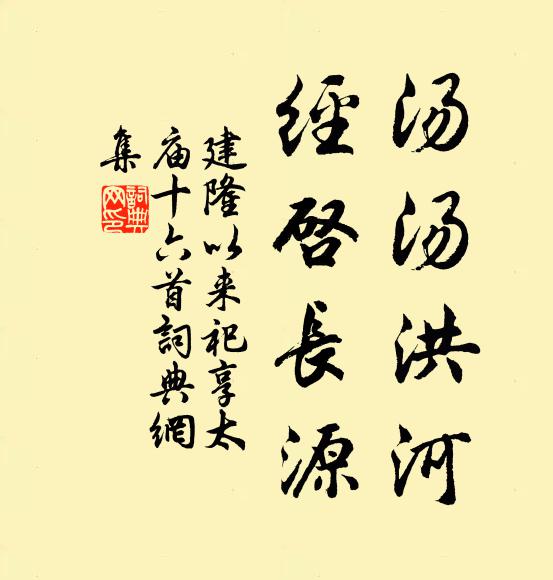 汤汤洪河
經啓長源
建隆以来祀享太
庙十六首詞典網
集
詞典
网印